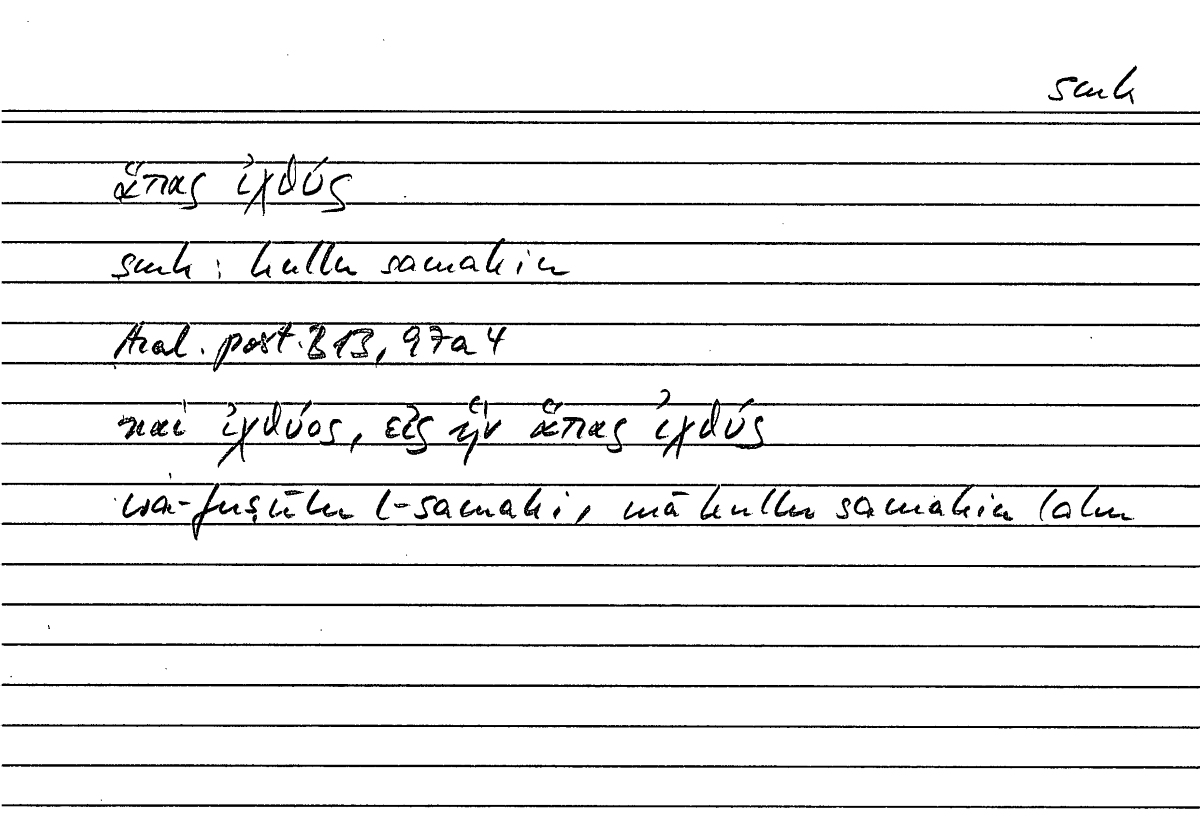 smk
ἅπας ἰχθύς
smk : kullu samakin
Anal. post. B 13, 97a4
καὶ ἰχθύος, εἰς ἣν ἅπας ἰχθύς
wa-fuṣūlu l-samaki, mā kullu samakin lahu